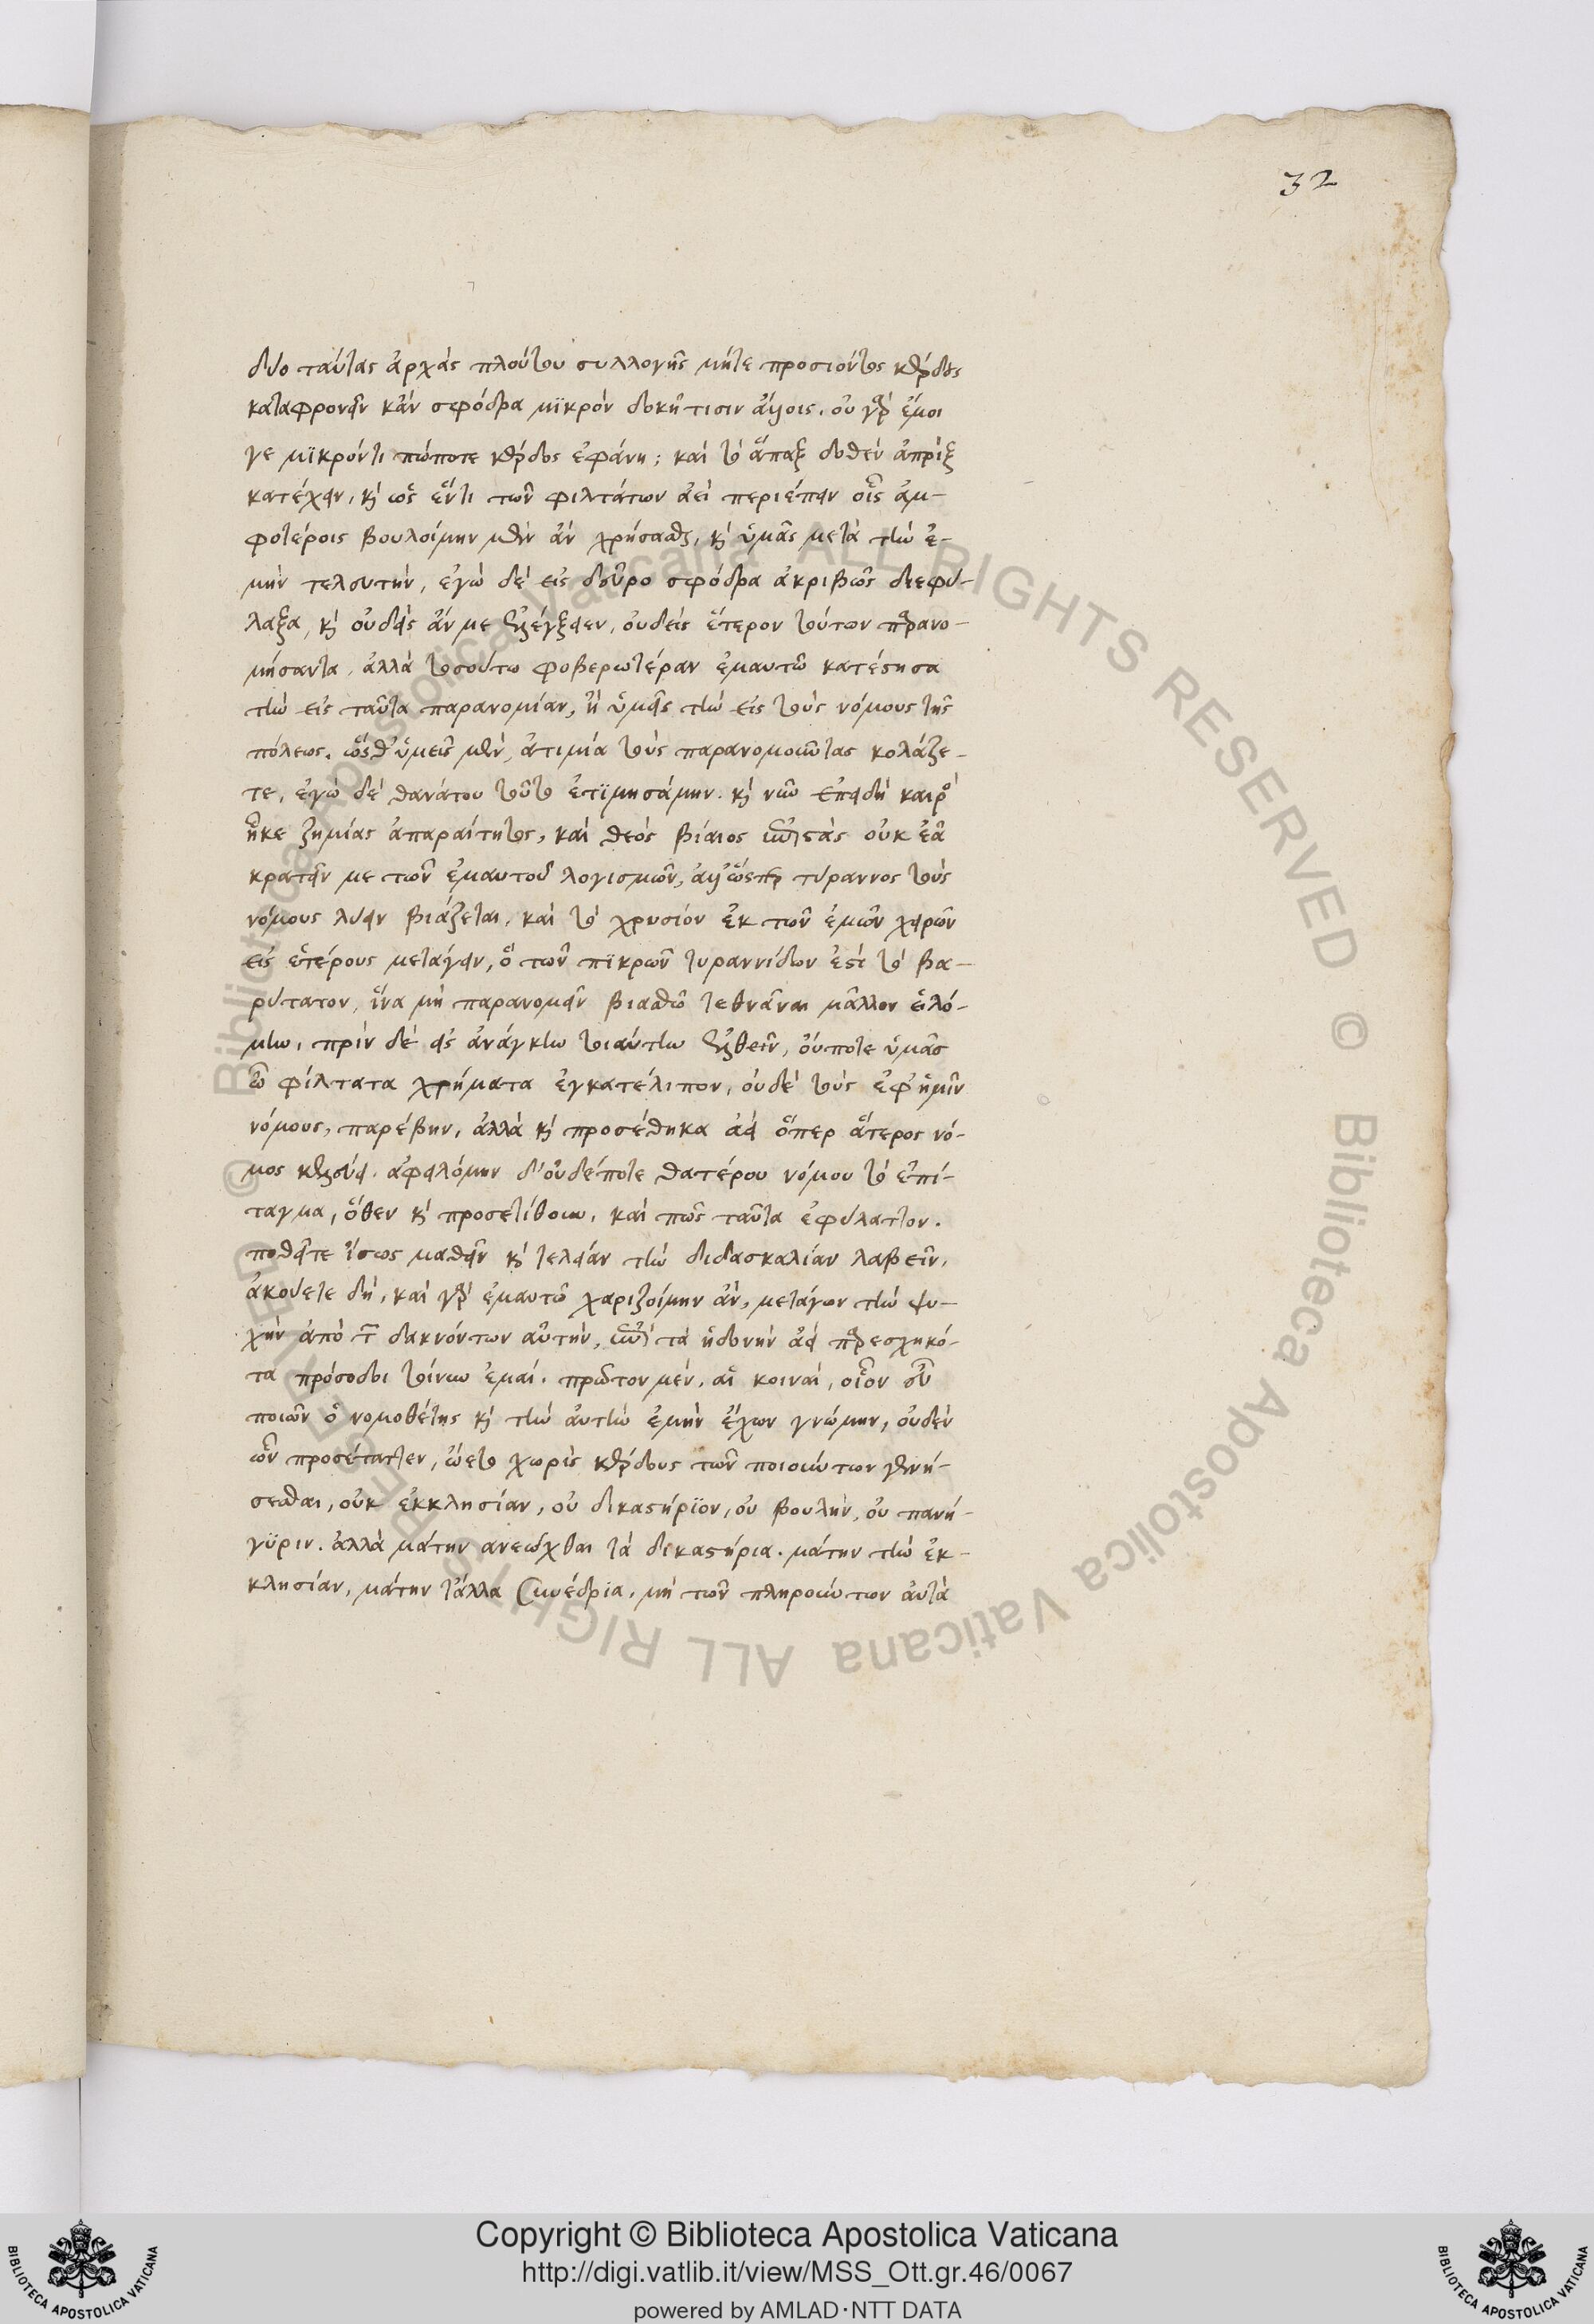 32
δύο ταύτας ἀρχὰς πλούτου συλλογῆς μήτε προσιόντος κέρδους
καταφρονεῖν κἂν σφόδρα μϊκρὸν δοκῇ τισιν ἄλλοις. οὐ γὰρ ἐμοι
γε μϊκρόν τι πώποτε κέρδος ἐφάνη; καὶ τὸ ἅπαξ δοθὲν ἀπρὶξ
κατέχειν, καὶ ὡς ἕν τι τῶν φιλτάτων ἀεὶ περιέπειν οἷς ἀμ-
φοτέροις βουλοίμην μὲν ἂν χρήσασθαι, καὶ ὑμᾶς μετὰ τὴν ἐ-
μὴν τελευτὴν, ἐγὼ δὲ εἰς δεῦρο σφόδρα ἀκριβῶς διεφύ-
λαξα, καὶ οὐδεὶς ἄν με ἐξελέγξειεν, οὐδεὶς ἕτερον τούτων παρανο-
μήσαντα, ἀλλὰ τοσούτω φοβερωτέραν ἐμαυτῶ κατέστησα
τὴν εἰς ταῦτα παρανομίαν, ἢ ὑμεῖς τὴν εἰς τοὺς νόμους τῆς
πόλεως. ὥσθ' ὑμεῖς μὲν, ἀτιμία τοὺς παρανομοῦντας κολάζε-
τε, ἐγὼ δὲ θανάτου τοῦτο ἐτϊμησάμην. καὶ νῦν ἐπειδὴ καιρὸς
ἧκε ζημίας ἀπαραίτητος, καὶ θεὸς βίαιος ἐπιστὰς οὐκ ἐᾶ
κρατεῖν με τῶν ἐμαυτοῦ λογισμῶν, ἀλλ' ὥσπερ τύραννος τοὺς
νόμους λύειν βιάζεται, καὶ τὸ χρυσίον ἐκ τῶν ἐμῶν χειρῶν
εἰς ἑτέρους μετάγειν, ὃ τῶν πϊκρῶν τυραννίδων ἐστὶ τὸ βα-
ρύτατον, ἵνα μὴ παρανομεῖν βιασθῶ τεθνάναι μᾶλλον εἱλό-
μην, πρὶν δὲ εἰς ἀνάγκην τοιαύτην ἐλθεῖν, οὔποτε ὑμᾶς
ὦ φίλτατα χρήματα ἐγκατέλιπον, οὐδὲ τοὺς ἐφ' ἡμῖν
νόμους, παρέβην, ἀλλὰ καὶ προσέθηκα ἀεὶ ὅπερ ἅτερος νό-
μος κελεύει. ἀφειλόμην δ' οὐδέποτε θατέρου νόμου τὸ ἐπί-
ταγμα, ὅθεν καὶ προσετίθουν, καὶ πῶς ταῦτα ἐφύλαττον.
ποθεῖτε ἴσως μαθεῖν καὶ τελείαν τὴν διδασκαλίαν λαβεῖν,
ἀκούετε δὴ, καὶ γὰρ ἐμαυτῶ χαριζοίμην ἂν, μετάγων τὴν ψυ-
χὴν ἀπὸ τῶν δακνόντων αὐτὴν, ἐπὶ τὰ ἡδονὴν ἀεὶ παρεσχηκό-
τα πρόσοδοι τοίνυν ἐμαί. πρῶτον μέν, αἱ κοιναὶ, οἷον εὖ
ποιῶν ὁ νομοθέτης καὶ τὴν αὐτὴν ἐμὴν ἔχων γνώμην, οὐδὲν
ὧν προσέταττεν, ὤετο χωρὶς κέρδους τῶν ποιούντων γενή-
σεσθαι, οὐκ ἐκκλησίαν, οὐ δικαστήρϊον, οὐ βουλὴν, οὐ πανή-
γϋριν. ἀλλὰ μάτην ἀνεῶχθαι τὰ δικαστήρια. μάτην τὴν ἐκ-
κλησίαν, μάτην τἄλλα συνέδρϊα, μὴ τῶν πληρούντων αὐτὰ
Copyright © Biblioteca Apostolica Vaticana
http://digi.vatlib.it/view/MSS_Ott.gr.46/0067
powered by AMLAD·NTT DATA
BIBLIOTECA APOSTOLICA VATICANA
BIBLIOTECA APOSTOLICA VATICANA
© Biblioteca Apostolica Vaticana ALL RIGHTS RESERVED © Biblioteca Apostolica Vaticana ALL RIGHTS RESERVED